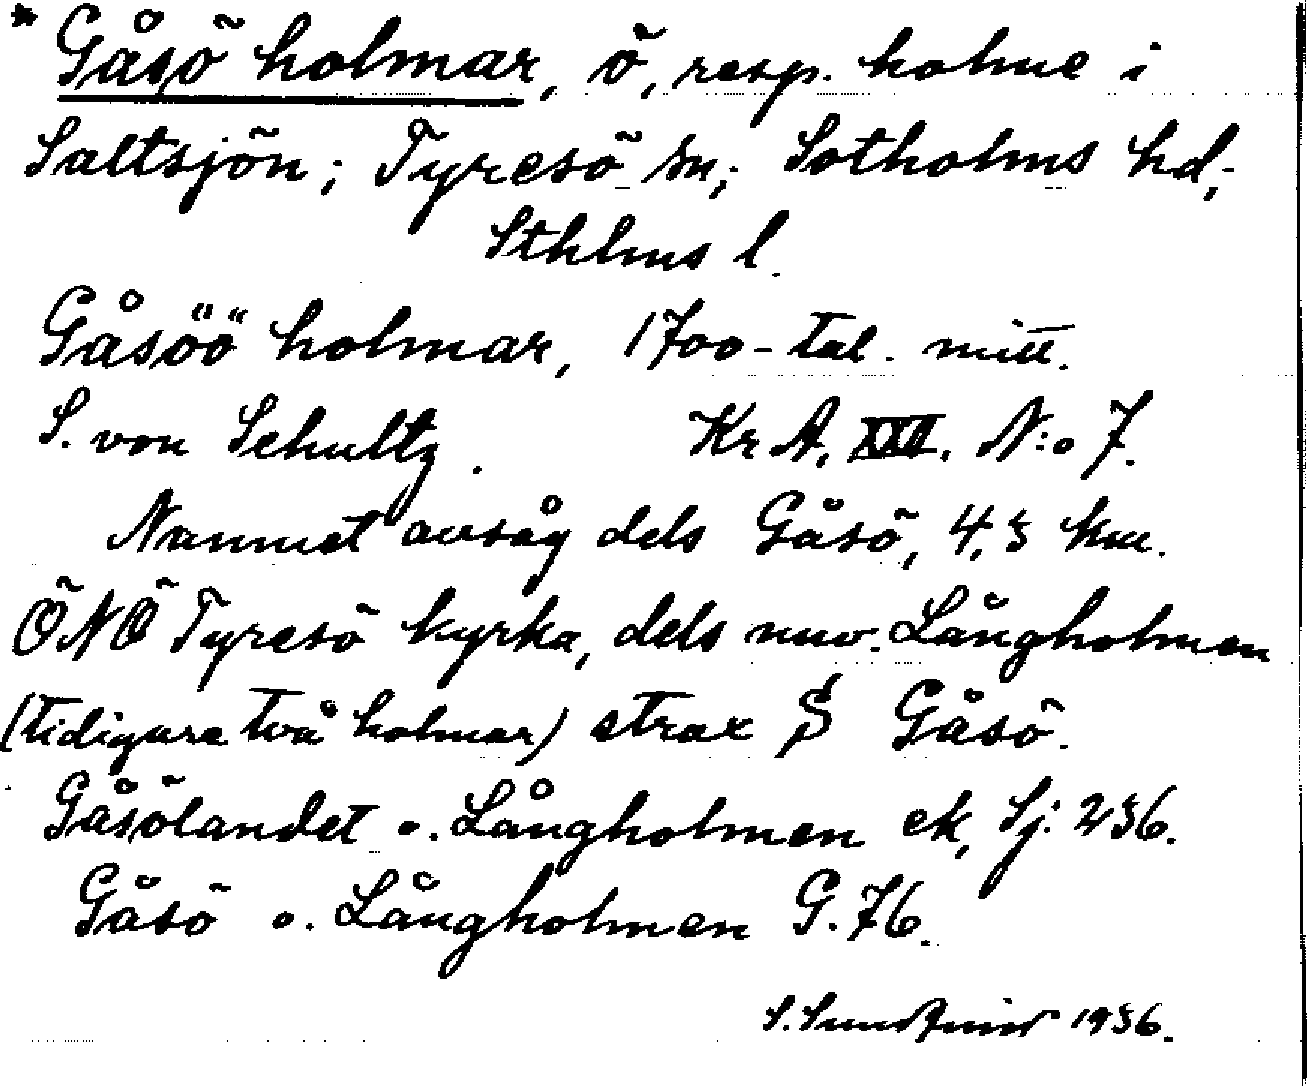 * Gåsö holmar, ö, resp. holme i
Saltsjön; Tyresö sn; Sotholms hd;
Sthlms l.
Gåsöö holmar, 1700-tal. mitt.
S. von Schultz. Kr A. XXII. N:o 7.
Namnet avsåg dels Gåsö, 4,5 km.
ÖNÖ Tyresö kyrka, dels nuv. Långholmen
(tidigare två holmar) strax S Gåsö.
Gåsölandet o. Långholmen ek, Sj. 256.
Gåsö o. Långholmen G. 76.
S. 1956.